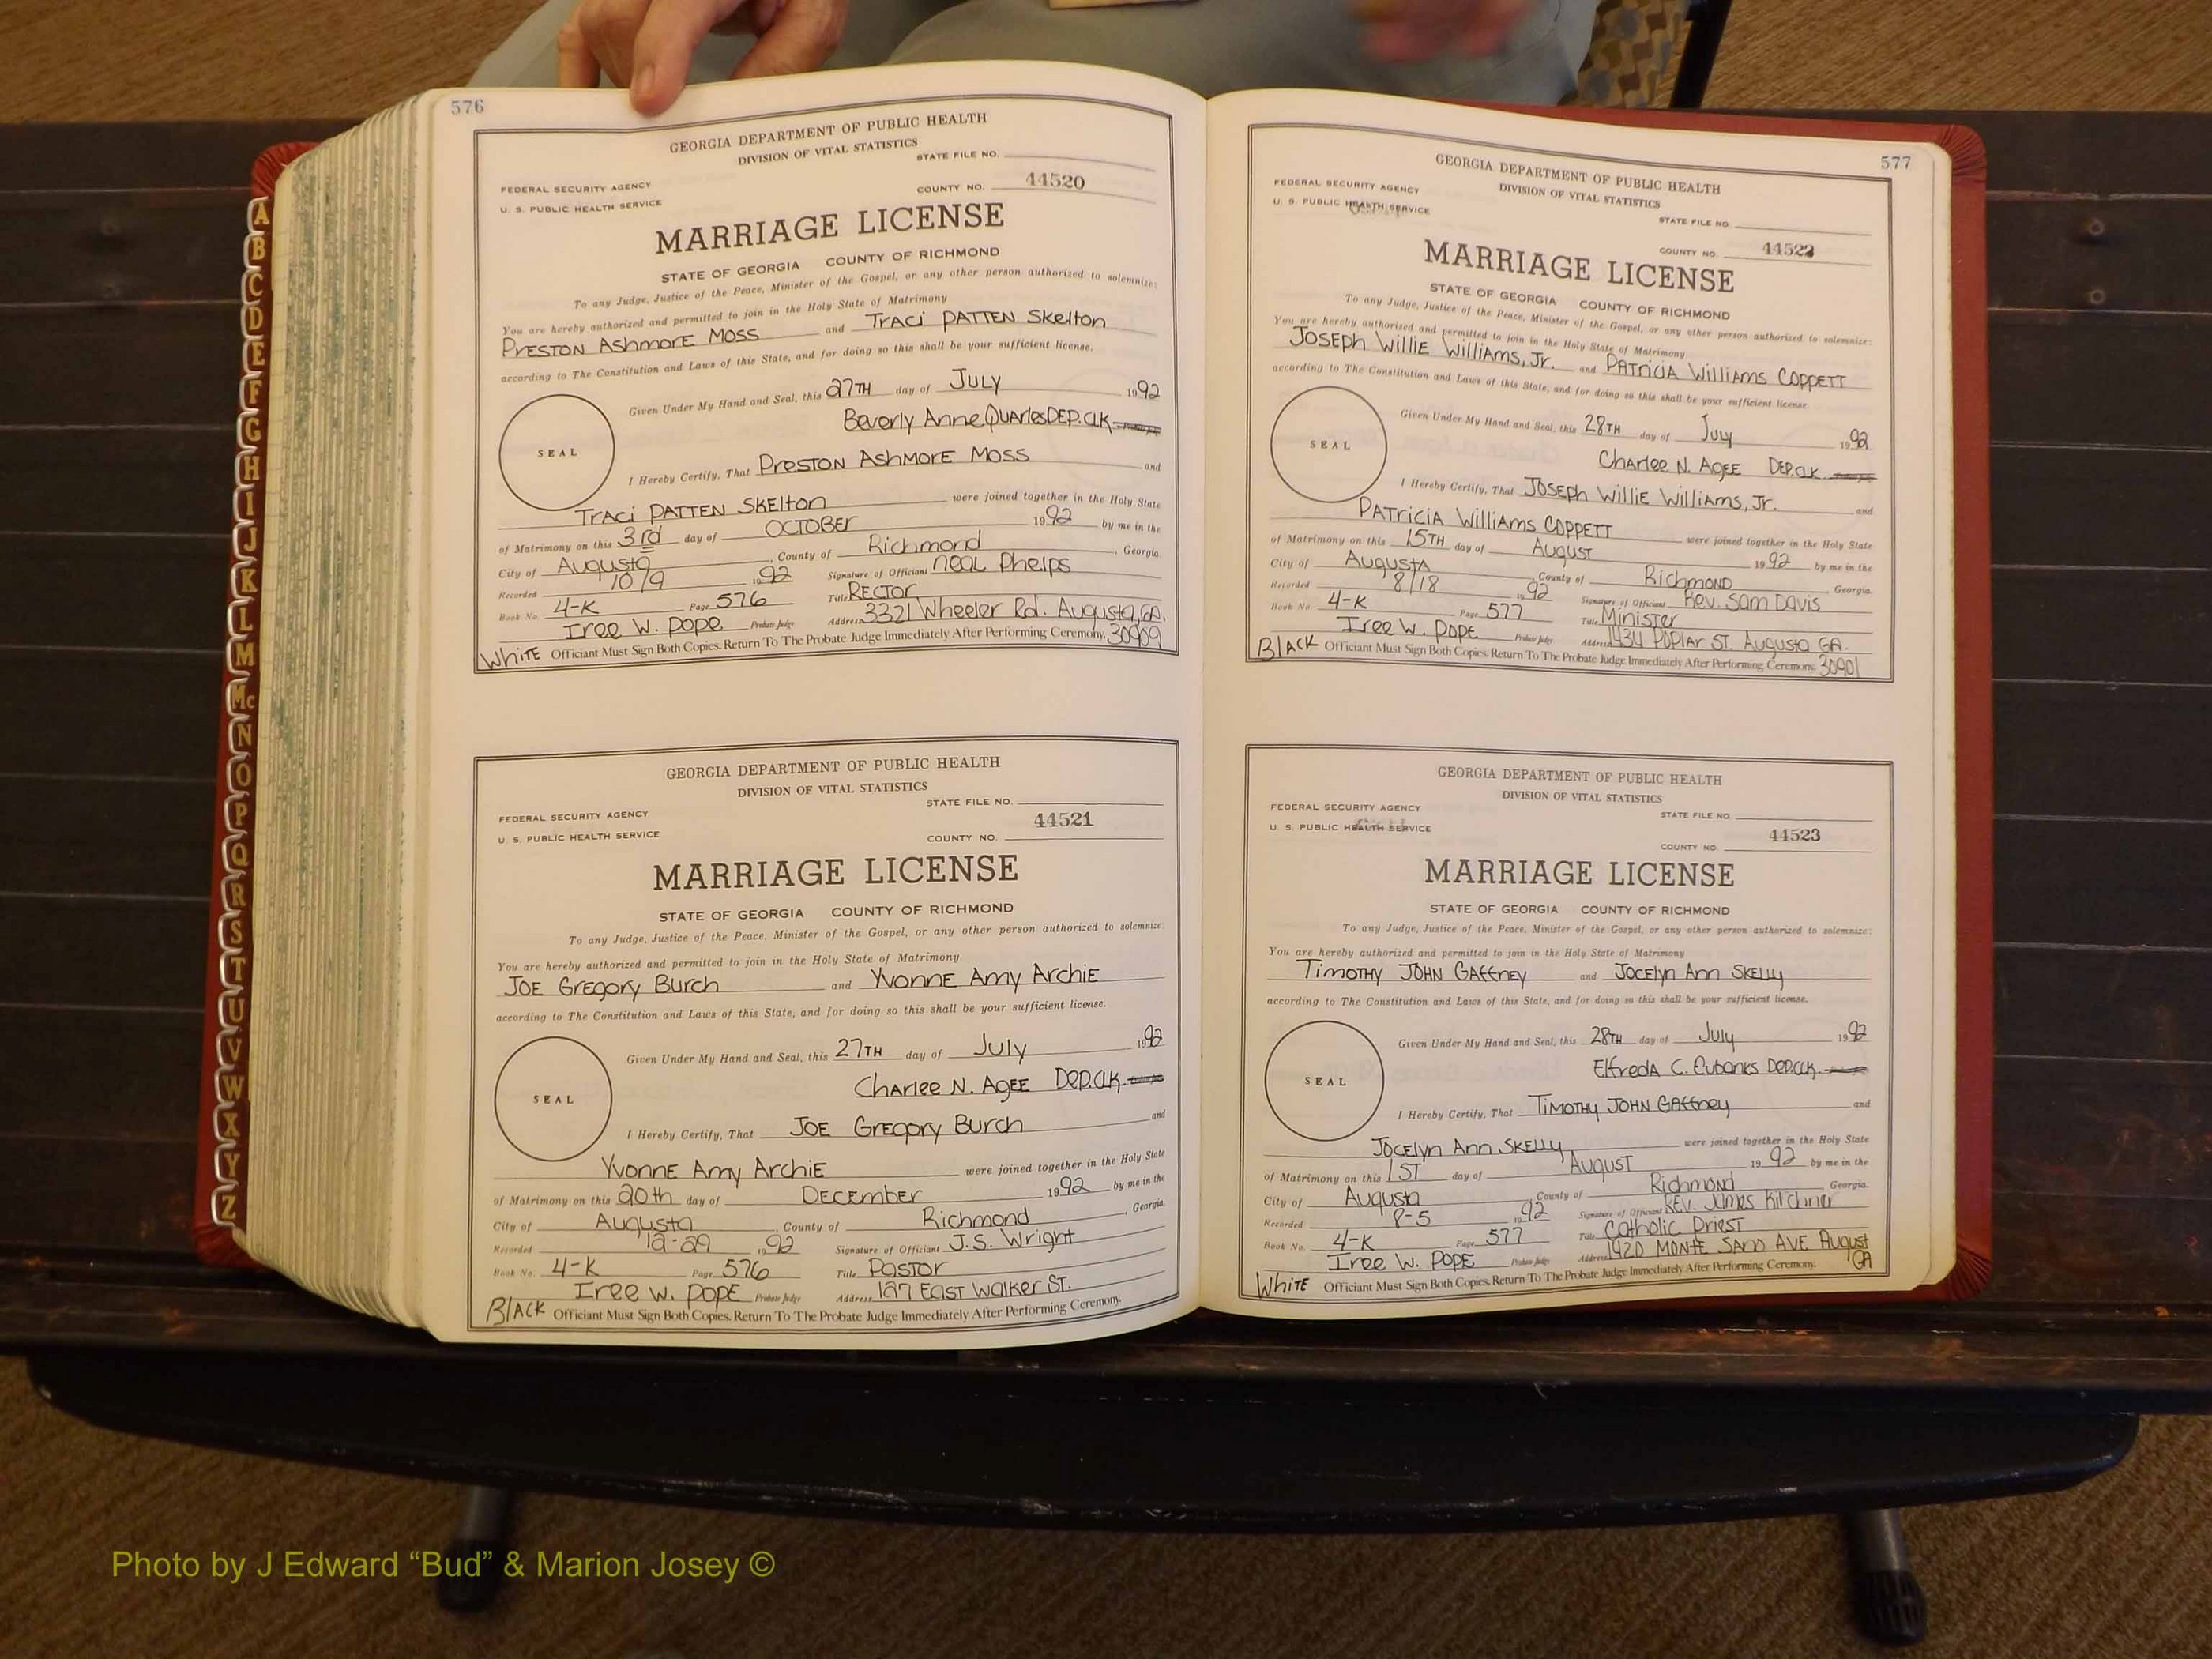 576
GEORGIA DEPARTMENT OF PUBLIC HEALTH
DIVISION OF VITAL STATISTICS
STATE FILE NO.
FEDERAL SECURITY AGENCY
COUNTY NO. 44520
U. S. PUBLIC HEALTH SERVICE
MARRIAGE LICENSE
STATE OF GEORGIA COUNTY OF RICHMOND
To any Judge, Justice of the Peace, Minister of the Gospel, or any other person authorized to solemnize:
You are hereby authorized and permitted to join in the Holy State of Matrimony
PRESTON AshmorE MOSS and TRACi PATTEN SKelton
according to The Constitution and Laws of this State, and for doing so this shall be your sufficient license.
Given Under My Hand and Seal, this 27TH day of JULY 1992
Beverly Anne QUARles DEP. CLK.
SEAL
I Hereby Certify, That PRESTON AShMORE MOSS and
TRACi PATTEN SKElton were joined together in the Holy State
of Matrimony on this 3rd day of OCTOBER 1992 by me in the
City of Augusta, County of Richmond, Georgia.
Recorded 10/9 1992 Signature of Officiant Neal Phelps
Book No. 4-K Page 576 Title RECTOR
Iree W. Pope Probate Judge Address 3321 Wheeler Rd. Augusta, GA.
WhiTE Officiant Must Sign Both Copies. Return To The Probate Judge Immediately After Performing Ceremony. 30909
GEORGIA DEPARTMENT OF PUBLIC HEALTH
DIVISION OF VITAL STATISTICS
STATE FILE NO.
FEDERAL SECURITY AGENCY
44521
U. S. PUBLIC HEALTH SERVICE COUNTY NO.
MARRIAGE LICENSE
STATE OF GEORGIA COUNTY OF RICHMOND
To any Judge, Justice of the Peace, Minister of the Gospel, or any other person authorized to solemnize:
You are hereby authorized and permitted to join in the Holy State of Matrimony
JOE Gregory Burch and YvonnE Amy ArchiE
according to The Constitution and Laws of this State, and for doing so this shall be your sufficient license.
Given Under My Hand and Seal, this 27TH day of July 1992
Charlee N. AgEE DEP. CLK.
SEAL
I Hereby Certify, That JOE Gregory Burch and
YvonnE Amy ArchiE were joined together in the Holy State
of Matrimony on this 20th day of DECEMBER 1992 by me in the
City of Augusta, County of Richmond, Georgia.
Recorded 12-29 1992 Signature of Officiant J.S. Wright
Book No. 4-K Page 576 Title Pastor
Iree W. POPE Probate Judge Address 127 EAST Walker ST.
BlACK Officiant Must Sign Both Copies. Return To The Probate Judge Immediately After Performing Ceremony.
577
GEORGIA DEPARTMENT OF PUBLIC HEALTH
DIVISION OF VITAL STATISTICS
FEDERAL SECURITY AGENCY
U. S. PUBLIC HEALTH SERVICE
STATE FILE NO.
COUNTY NO. 44522
MARRIAGE LICENSE
STATE OF GEORGIA COUNTY OF RICHMOND
To any Judge, Justice of the Peace, Minister of the Gospel, or any other person authorized to solemnize:
You are hereby authorized and permitted to join in the Holy State of Matrimony
JOSEPH WilliE WilliAms, Jr. and PATRiCiA Williams COPPETT
according to The Constitution and Laws of this State, and for doing so this shall be your sufficient license.
Given Under My Hand and Seal, this 28TH day of July 1992
Charlee N. AgEE DEP. CLK.
SEAL
I Hereby Certify, That JOSEPH WilliE WilliAms, Jr. and
PATRiCiA WilliAms COPPETT were joined together in the Holy State
of Matrimony on this 15TH day of AUGUST 1992 by me in the
City of AugustA, County of RichmonD, Georgia.
Recorded 8/18 1992 Signature of Officiant Rev. Sam Davis
Book No. 4-K Page 577 Title Minister
Iree W. POPE Probate Judge Address 1434 POPlAr ST. Augusta GA.
BlACK Officiant Must Sign Both Copies. Return To The Probate Judge Immediately After Performing Ceremony. 30901
GEORGIA DEPARTMENT OF PUBLIC HEALTH
DIVISION OF VITAL STATISTICS
FEDERAL SECURITY AGENCY STATE FILE NO.
U. S. PUBLIC HEALTH SERVICE 44523
COUNTY NO.
MARRIAGE LICENSE
STATE OF GEORGIA COUNTY OF RICHMOND
To any Judge, Justice of the Peace, Minister of the Gospel, or any other person authorized to solemnize:
You are hereby authorized and permitted to join in the Holy State of Matrimony
TimOTHY JOHN GAffney and JOCElyn Ann SKElly
according to The Constitution and Laws of this State, and for doing so this shall be your sufficient license.
Given Under My Hand and Seal, this 28TH day of July 1992
ElfredA C. Eubanks DEP. CLK.
SEAL
I Hereby Certify, That TimOTHy JOHN GAffney and
JOCElyn Ann SKELLY were joined together in the Holy State
of Matrimony on this 1ST day of AUGUST 1992 by me in the
City of Augusta, County of Richmond Georgia.
Recorded 8-5 1992 Signature of Officiant REV. James Kilchner
Book No. 4-K Page 577 Title Catholic Priest
Iree W. POPE Probate Judge Address 1420 MONTE SANO AVE August GA
WhiTE Officiant Must Sign Both Copies. Return To The Probate Judge Immediately After Performing Ceremony.
A
B
C
D
E
F
G
H
I
J
K
L
M
Mc
N
O
P
Q
R
S
T
U
V
W
X
Y
Z
Photo by J Edward “Bud” & Marion Josey ©